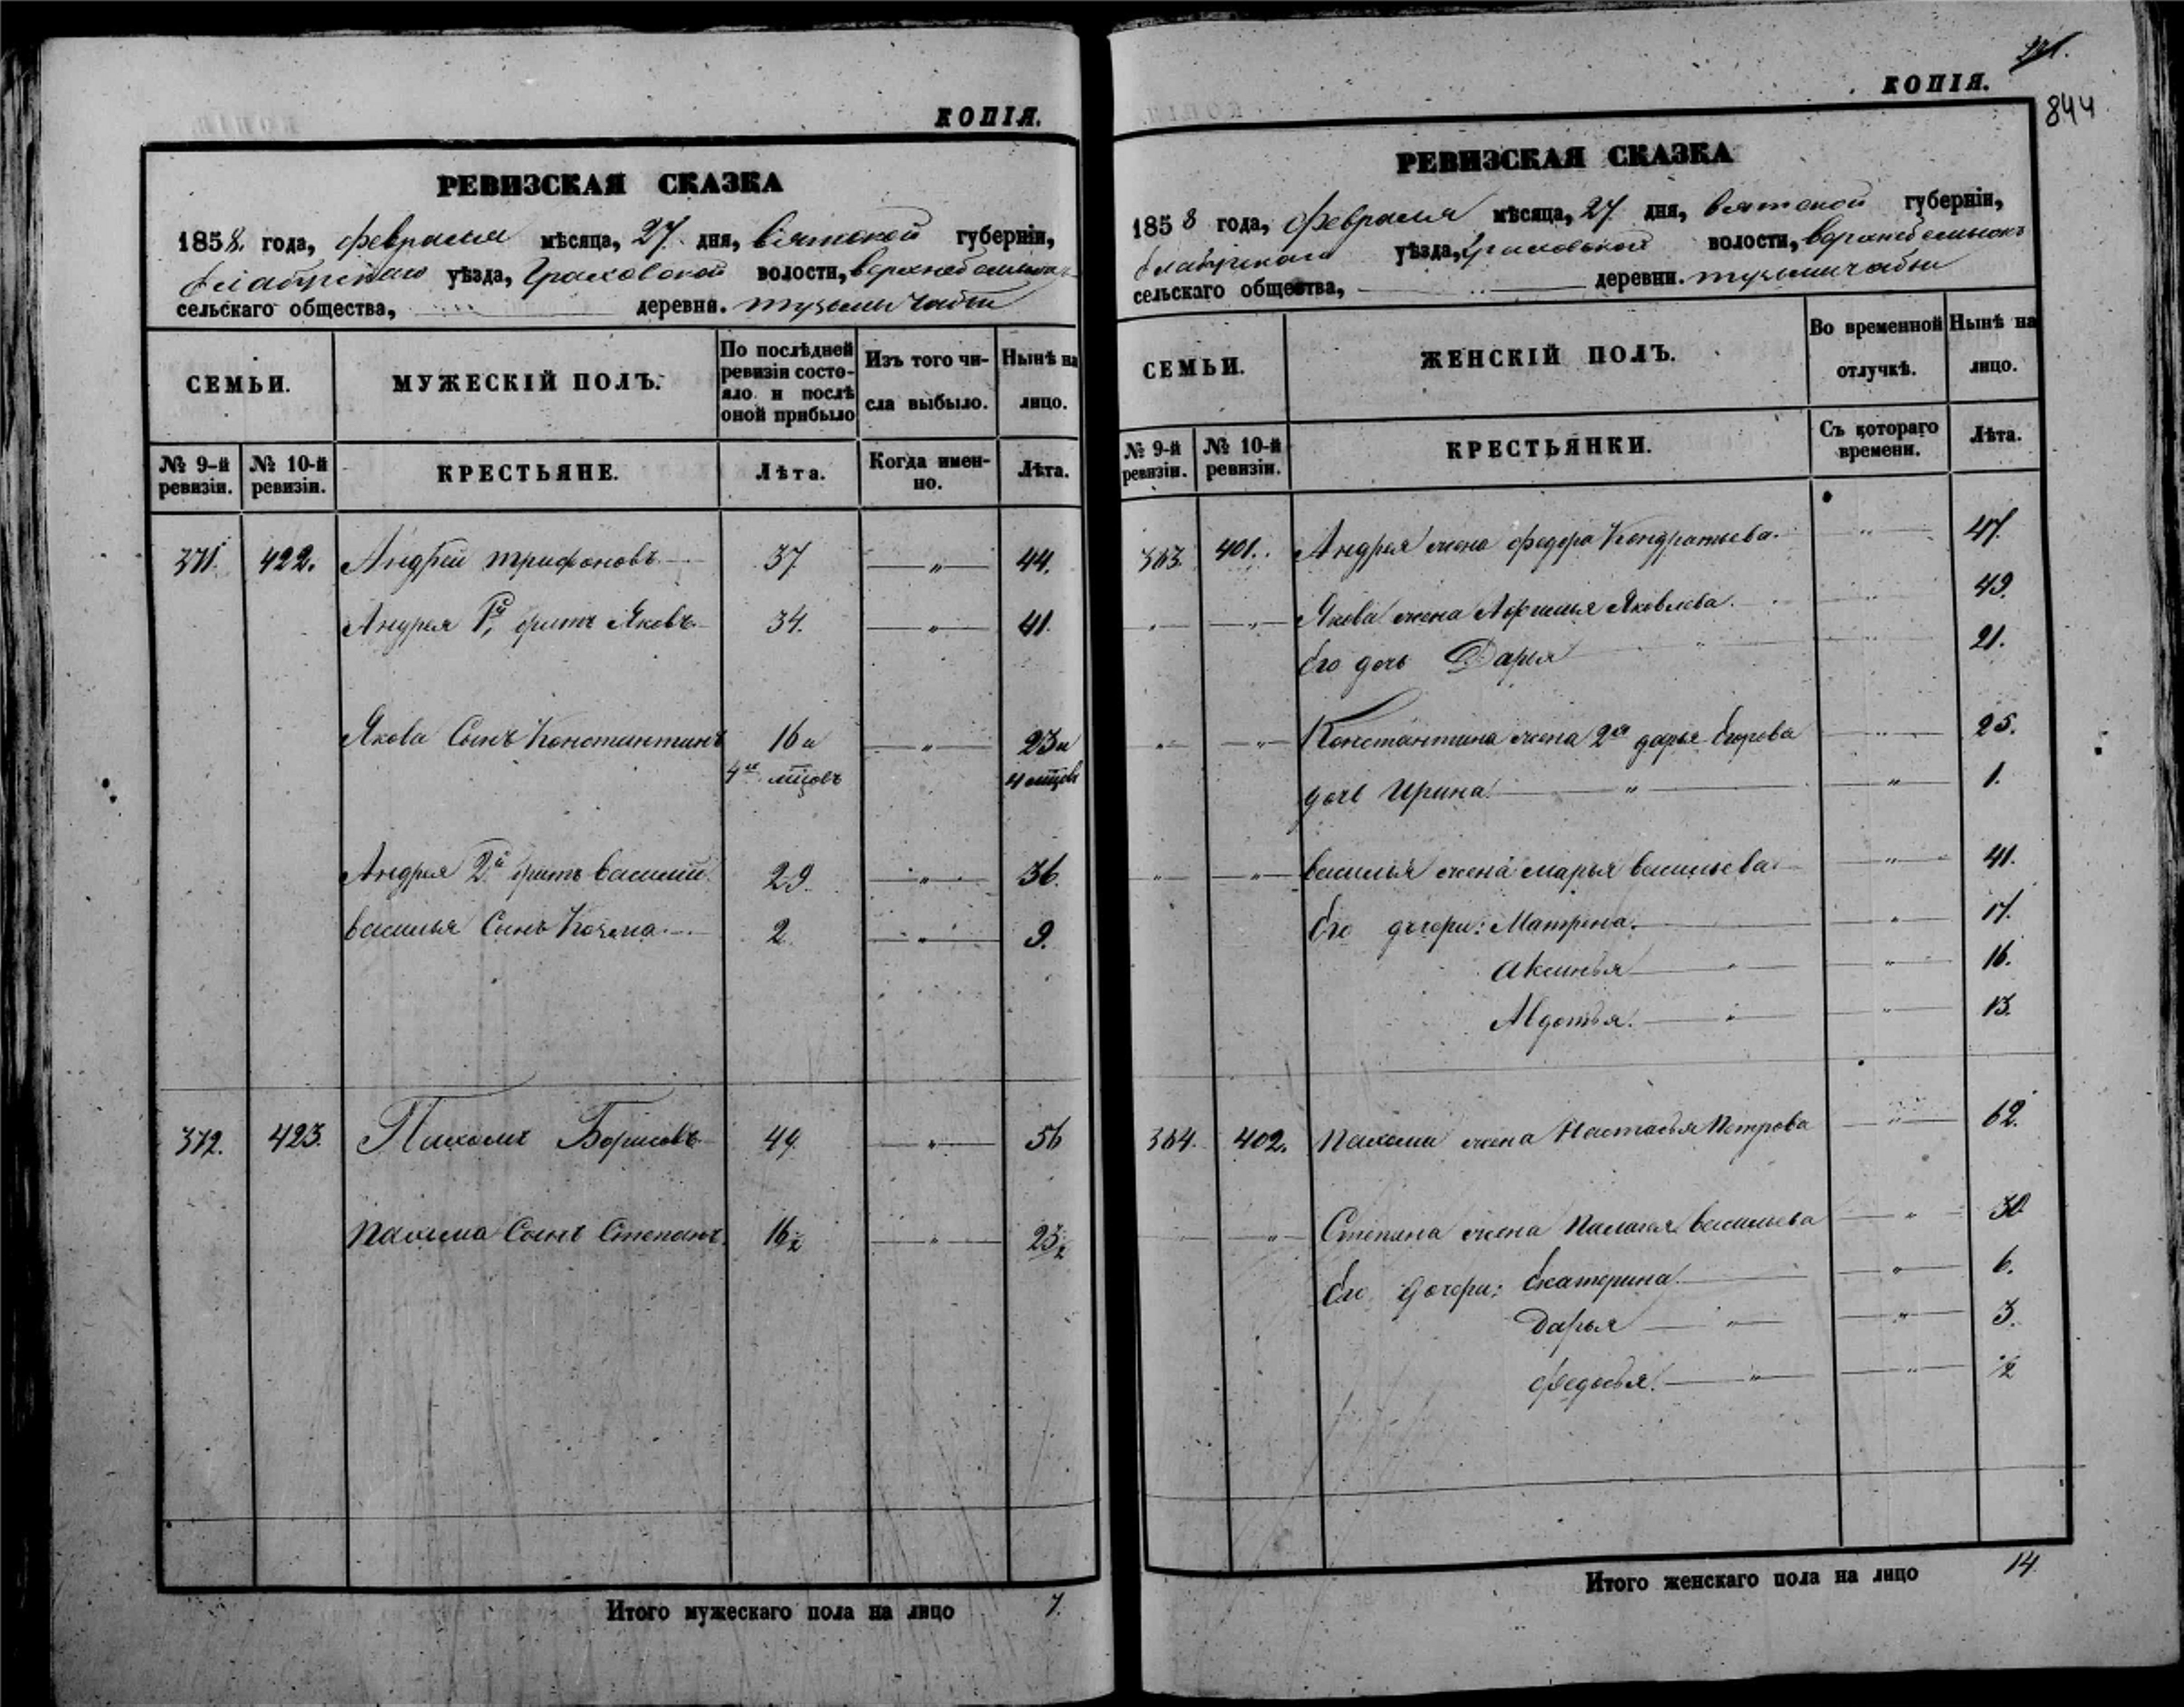 КОПІЯ.
РЕВИЗСКАЯ СКАЗКА
1858. года, февраля мѣсяца, 27. дня, вятской губерніи,
Елабужскаго уѣзда, Граховской волости,
сельскаго общества, деревни.
СЕМЬИ.
МУЖЕСКІЙ ПОЛЪ.
По послѣдней ревизіи состояло и послѣ оной прибыло
Изъ того числа выбыло.
Нынѣ на лицо.
№ 9-й ревизіи.
№ 10-й ревизіи.
КРЕСТЬЯНЕ.
Лѣта.
Когда именно.
Лѣта.
371. 422. Андрей трифоновъ 37 — „ — 44.
Андрея 1й, братъ Яковъ 34. — „ — 41.
Якова Сынъ Константинъ 16 и — „ — 23 и
4хъ мцовъ 4 мцовъ
Андрея 2й братъ василий 29. — „ — 36.
василья Сынъ Козма 2. — „ — 9.
372. 423. Пахомъ Борисовъ 49. — „ — 56
Пахома Сынъ Степанъ. 16½ — „ — 23½
Итого мужескаго пола на лицо 7.
КОПІЯ.
844
РЕВИЗСКАЯ СКАЗКА
1858 года, февраля мѣсяца, 27 дня, вятской губерніи,
Елабужскаго уѣзда, Граховской волости,
сельскаго общества, деревни.
СЕМЬИ.
ЖЕНСКІЙ ПОЛЪ.
Во временной отлучкѣ.
Нынѣ на лицо.
№ 9-й ревизіи.
№ 10-й ревизіи.
КРЕСТЬЯНКИ.
Съ котораго времени.
Лѣта.
363. 401. Андрея жена федора Кондратьева. — „ — 47.
„ — „ — Якова жена Афимья Яковлева. — „ — 49.
Его дочь Дарья — „ — 21.
„ — „ — Константина жена 2я дарья Егорова — „ — 25.
дочь Ирина — „ — 1.
„ — „ — василья жена марья васильева — „ — 41.
Его дочери: Матрена. — „ — 17.
Аксинья — „ — 16.
Авдотья. — „ — 13.
364. 402. Пахома жена Настасья Петрова — „ — 62.
„ — „ — Степана жена Палагея васильева — „ — 30
Его дочери: Екатерина — „ — 6.
Дарья — „ — 3.
федосья. — „ — ½
Итого женскаго пола на лицо 14